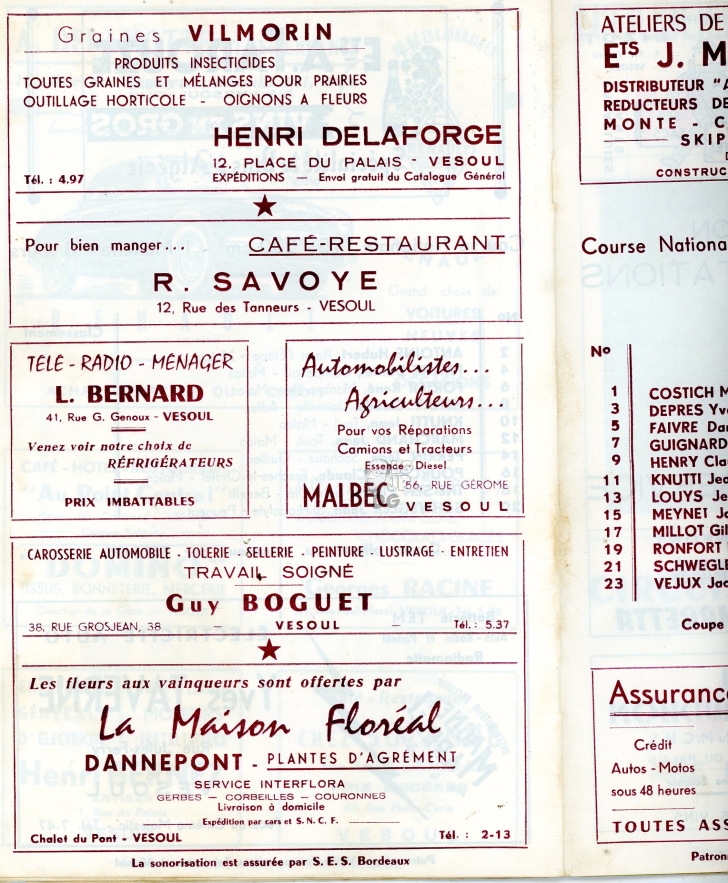 Graines VILMORIN
PRODUITS INSECTICIDES
TOUTES GRAINES ET MÉLANGES POUR PRAIRIES
OUTILLAGE HORTICOLE - OIGNONS A FLEURS
HENRI DELAFORGE
12, PLACE DU PALAIS - VESOUL
Tél. : 4.97 EXPÉDITIONS — Envoi gratuit du Catalogue Général
Pour bien manger... CAFÉ-RESTAURANT
R. SAVOYE
12, Rue des Tanneurs - VESOUL
TELÉ - RADIO - MÉNAGER
L. BERNARD
41, Rue G. Genoux - VESOUL
Venez voir notre choix de
RÉFRIGÉRATEURS
PRIX IMBATTABLES
Automobilistes...
Agriculteurs...
Pour vos Réparations
Camions et Tracteurs
Essence - Diesel
MALBEC 56, RUE GÉROME
VESOUL
CAROSSERIE AUTOMOBILE - TOLERIE - SELLERIE - PEINTURE - LUSTRAGE - ENTRETIEN
TRAVAIL SOIGNÉ
Guy BOGUET
38, RUE GROSJEAN, 38 — VESOUL — Tél. : 5.37
Les fleurs aux vainqueurs sont offertes par
La Maison Floréal
DANNEPONT - PLANTES D'AGRÉMENT
SERVICE INTERFLORA
GERBES — CORBEILLES — COURONNES
Livraison à domicile
Expédition par cars et S. N. C. F.
Chalet du Pont - VESOUL Tél. : 2-13
La sonorisation est assurée par S. E. S. Bordeaux
ATELIERS DE
ETS J. M
DISTRIBUTEUR "A
REDUCTEURS DE
MONTE - C
SKIP
CONSTRUC
Course Nationa
No
1 COSTICH M
3 DEPRES Yv
5 FAIVRE Da
7 GUIGNARD
9 HENRY Cla
11 KNUTTI Jea
13 LOUYS Je
15 MEYNET Ja
17 MILLOT Gil
19 RONFORT
21 SCHWEGLE
23 VEJUX Jac
Coupe
Assuranc
Crédit
Autos - Mot
sous 48 heures
TOUTES ASS
Patron